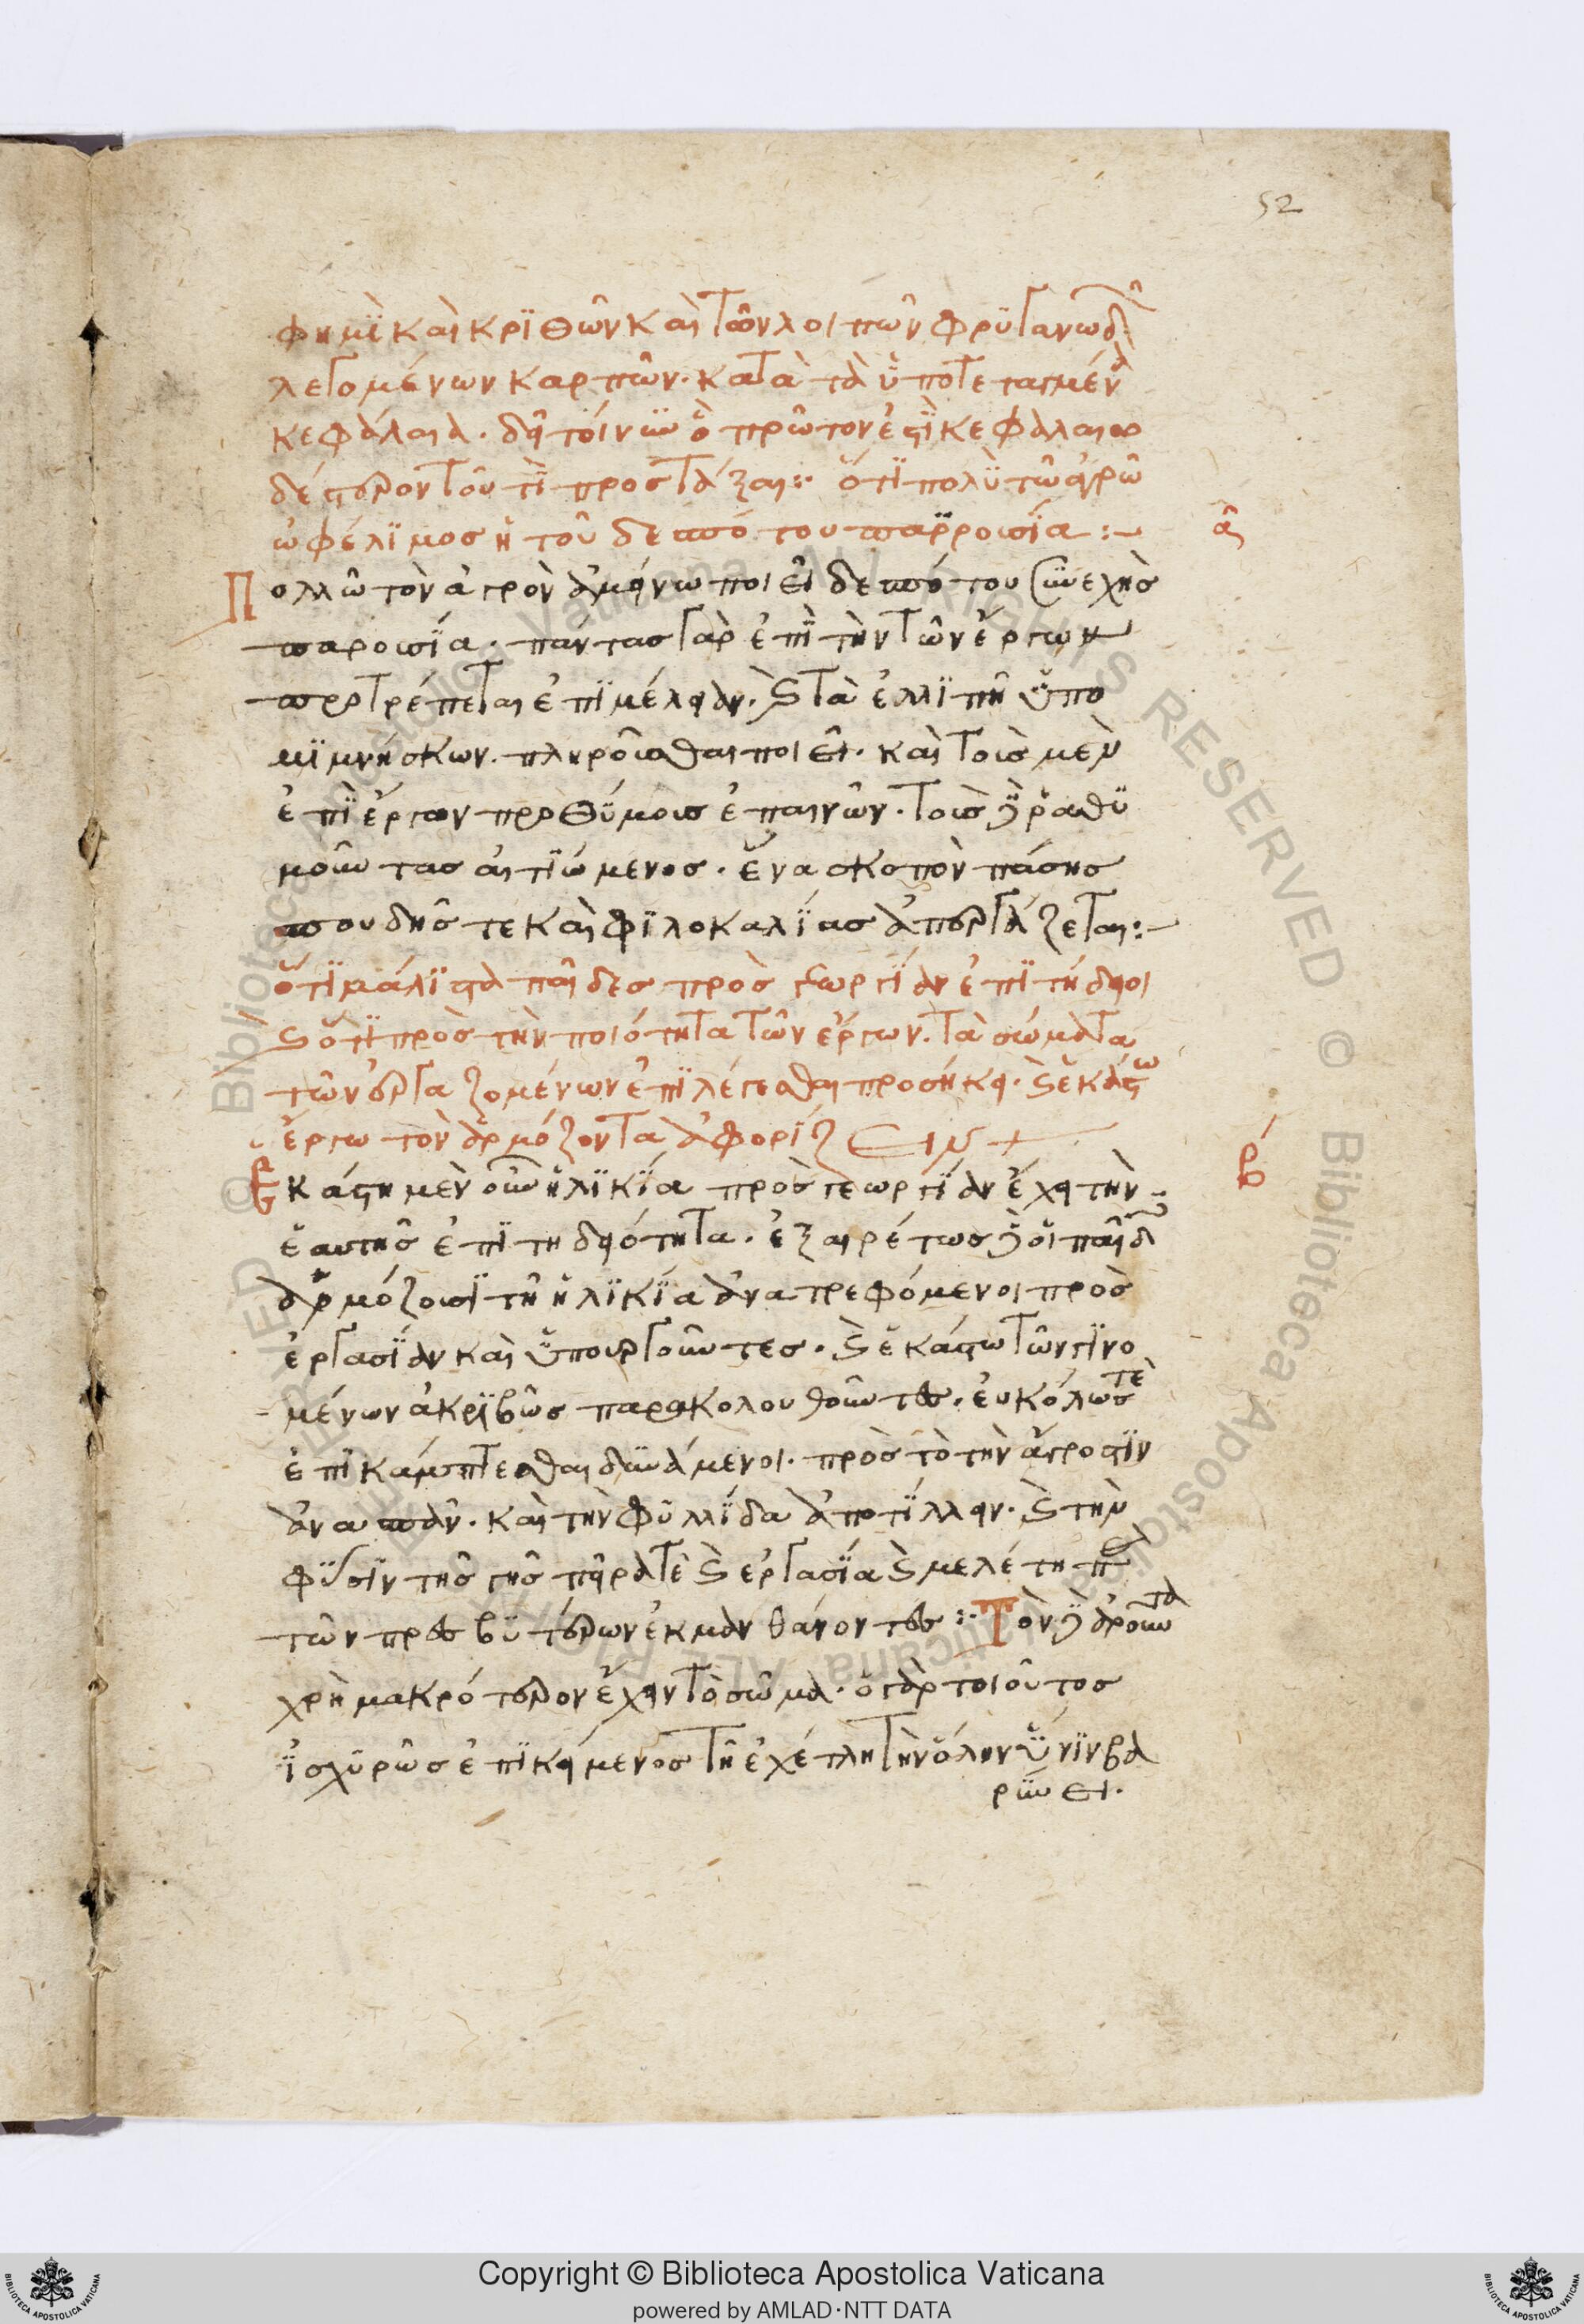 52
φημὶ καὶ κριθῶν καὶ τῶν λοιπῶν φρυγανωδῶν
λεγομένων καρπῶν. κατὰ τὰ ὑποτεταγμένα
κεφάλαια. δεῖ τοίνυν ὃ πρῶτον ἐστὶ κεφάλαιον
δεύτερον τοῦτὶ προστάξαι:· ὅτι πολὺ τῶ ἀγρῶ
ὠφέλιμος ἡ τοῦ δεσπότου παρουσία:-
α
Πολλῶ τὸν ἀγρὸν ἀμείνω ποιεῖ δεσπότου συνεχὴς
παρουσία. πάντας γὰρ ἐπὶ τὴν τῶν ἔργων
προτρέπεται ἐπιμέλειαν. καὶ τὰ ἐλλιπῆ ὑπο
μιμνήσκων. πληροῦσθαι ποιεῖ. καὶ τοὺς μὲν
ἐπὶ ἔργων προθύμους ἐπαινῶν. τοὺς δὲ ῥαθυ
μοῦντας αἰτιώμενος. ἕνα σκοπὸν πάσης
σπουδῆς τε καὶ φιλοκαλίας ἀπεργάζεται:-
ὅτι μάλιστα παῖδες πρὸς γεωργίαν ἐπιτήδειοι
καὶ ὅτι πρὸς τὴν ποιότητα τῶν ἔργων. τὰ σώματα
τῶν ἐργαζομένων ἐπιλέγεσθαι προσήκει. καὶ ἑκάστω
ἔργω τὸν ἁρμόζοντα ἀφορίζειν +
β
Ἑκάστη μὲν οὖν ἡλικία πρὸς γεωργίαν ἔχει τὴν
ἑαυτῆς ἐπιτηδειότητα. ἐξαιρέτως δὲ οἱ παῖδες
ἁρμόζουσι τῆ ἡλικία ἀνατρεφόμενοι πρὸς
ἐργασίαν καὶ ὑπουργοῦντες. καὶ ἑκάστω τῶν γινο
μένων ἀκριβῶς παρακολουθοῦντες. εὐκόλως τὲ
ἐπικάμπτεσθαι δυνάμενοι. πρὸς τὸ τὴν ἄγρωστιν
ἀνασπᾶν. καὶ τὴν φυλλίδα ἀποτίλλειν. καὶ τὴν
φύσιν τῆς γῆς πείρα τὲ καὶ ἐργασία καὶ μελέτη παρὰ
τῶν πρεσβυτέρων ἐκμανθάνοντες:· Τὸν δὲ ἀροῦντα
χρὴ μακρότερον ἔχειν τὸ σῶμα. ὁ γὰρ τοιοῦτος
ἰσχυρῶς ἐπικείμενος τῆ ἐχέτλη τὴν ὅλην ὕνιν βα
ρύνει.